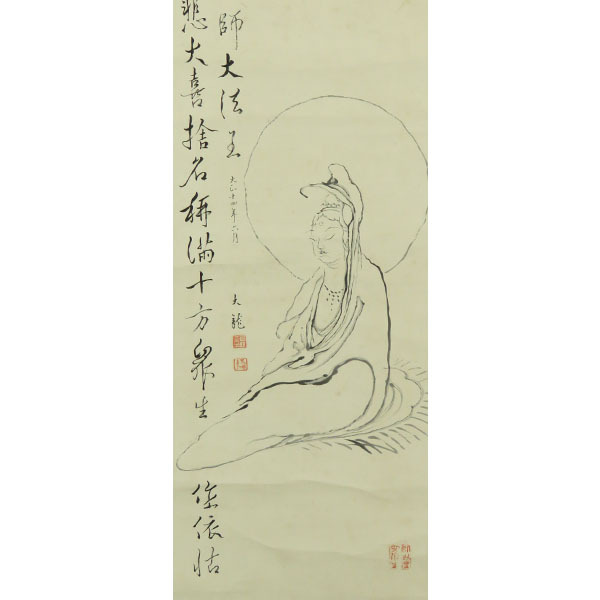 悲大喜捨名稱滿十方衆生作依怙
師大法
大正十四年六月
大龍